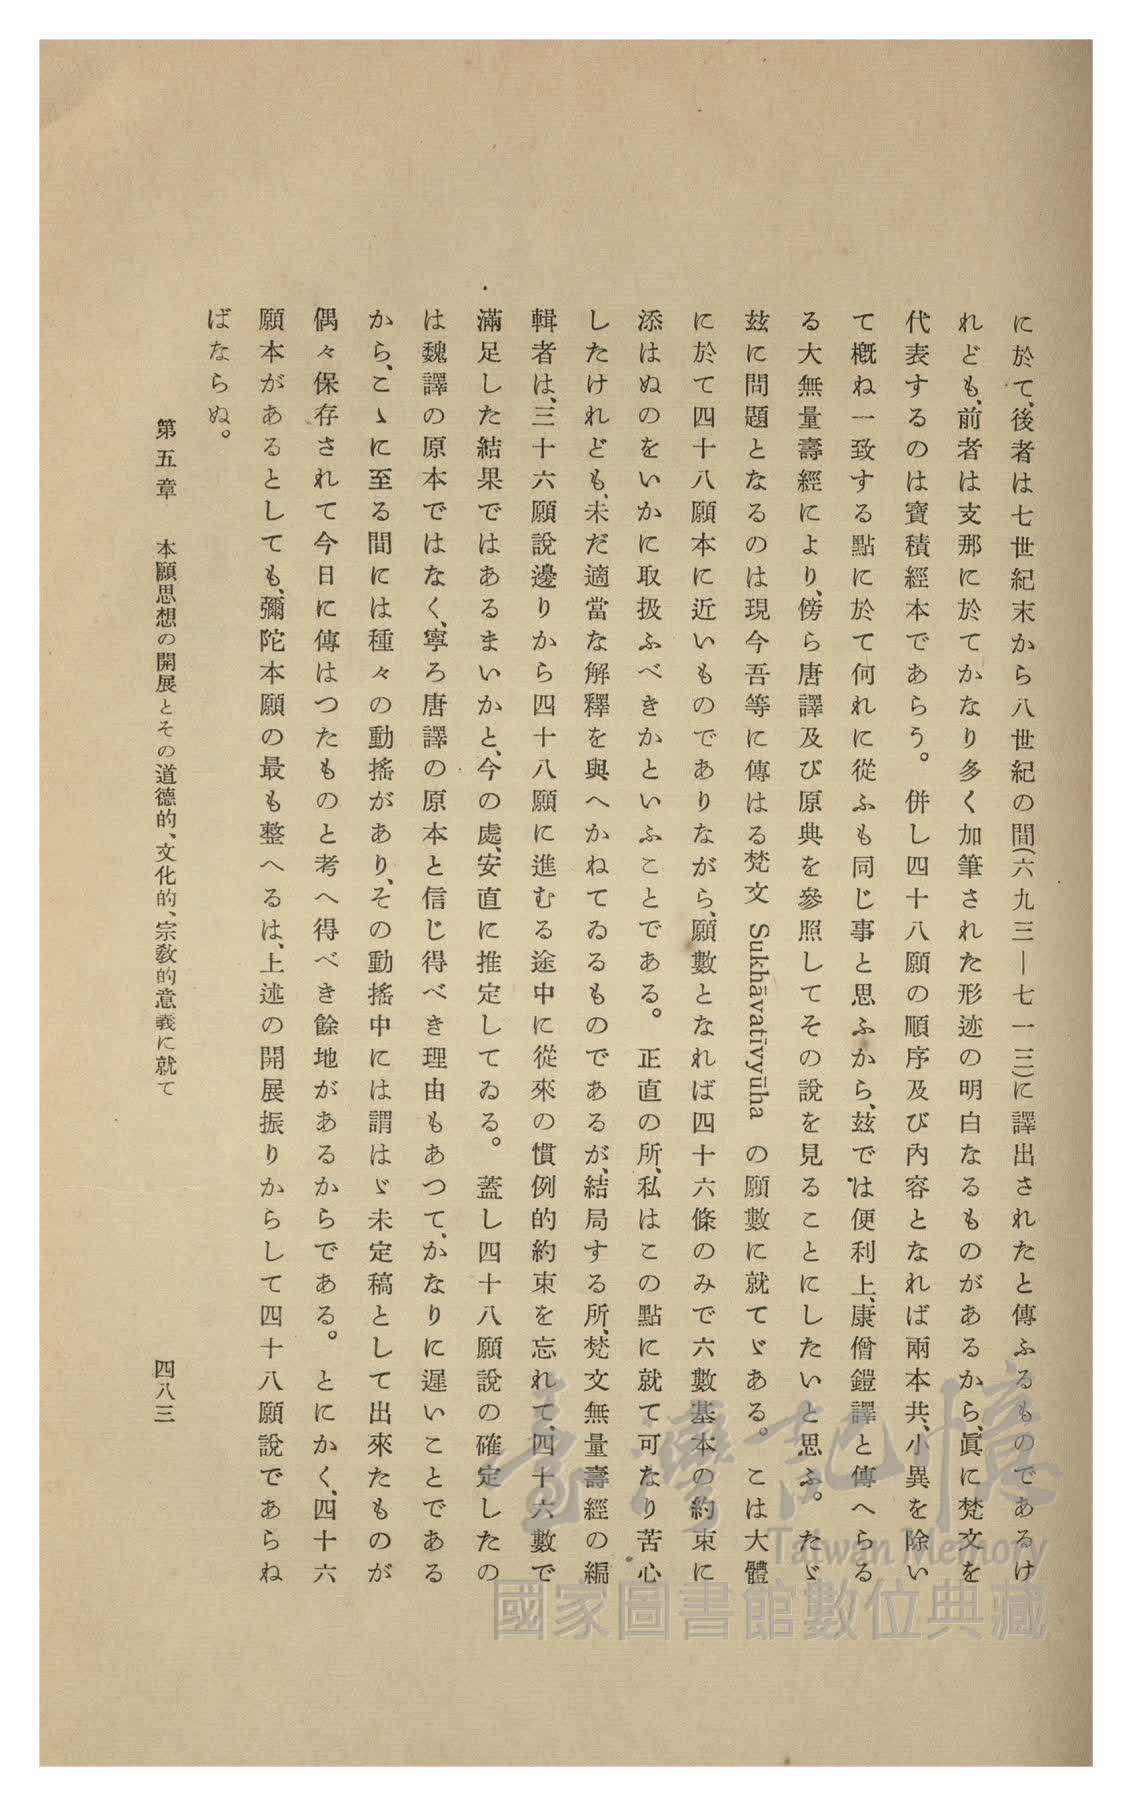 に於て、後者は七世紀末から八世紀の間(六九三―七一三)に譯出されたと傳ふるものであるけ
れども、前者は支那に於てかなり多く加筆された形迹の明白なるものがあるから、眞に梵文を
代表するのは寶積經本であらう。併し四十八願の順序及び內容となれば兩本共、小異を除い
て槪ね一致する點に於て何れに從ふも同じ事と思ふから、玆では便利上、康僧鎧譯と傳へらる
る大無量壽經により、傍ら唐譯及び原典を參照してその說を見ることにしたいと思ふ。たゞ
玆に問題となるのは現今吾等に傳はる梵文 Sukhāvatīvyūha の願數に就てゞある。こは大體
に於て四十八願本に近いものでありながら、願數となれば四十六條のみで六數基本の約束に
添はぬのをいかに取扱ふべきかといふことである。正直の所、私はこの點に就て可なり苦心
したけれども、未だ適當な解釋を與へかねてゐるものであるが、結局する所、梵文無量壽經の編
輯者は、三十六願說邊りから四十八願に進むる途中に從來の慣例的約束を忘れて、四十六數で
滿足した結果ではあるまいかと、今の處、安直に推定してゐる。蓋し四十八願說の確定したの
は魏譯の原本ではなく、寧ろ唐譯の原本と信じ得べき理由もあつて、かなりに遲いことである
から、こゝに至る間には種々の動搖があり、その動搖中には謂はゞ未定稿として出來たものが
偶々保存されて今日に傳はつたものと考へ得べき餘地があるからである。とにかく、四十六
願本があるとしても、彌陀本願の最も整へるは、上述の開展振りからして四十八願說であらね
ばならぬ。
第五章 本願思想の開展とその道德的、文化的、宗敎的意義に就て 四八三
臺灣記憶
Taiwan Memory
國家圖書館數位典藏